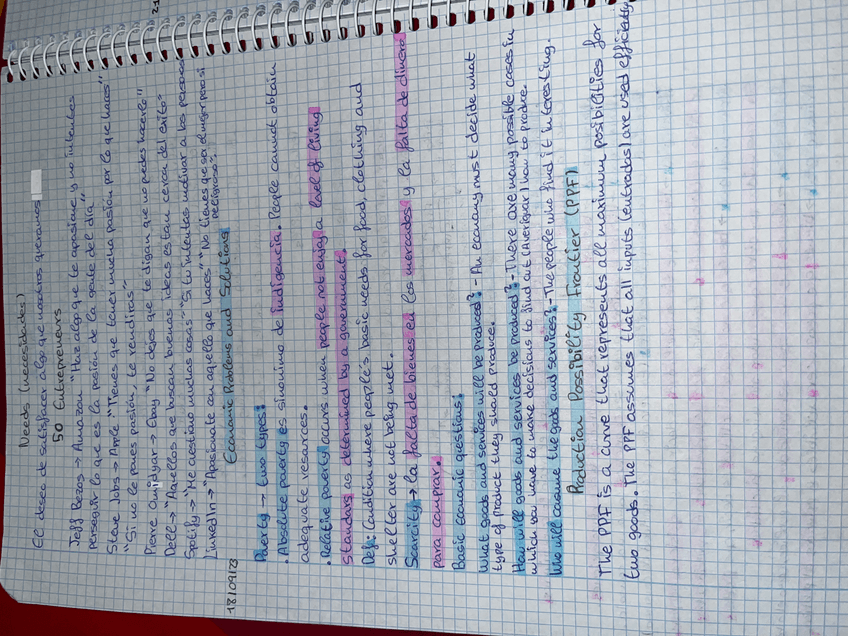 Needs (necesidades)
El deseo de satisfacer algo que nosotros queramos
50 Entrepreneurs
Jeff Bezos → Amazon "Haz algo que te apasione y no intentes
perseguir lo que es la pasión de la gente del día"
Steve Jobs → Apple "Tienes que tener mucha pasión por lo que haces"
"Si no le pones pasión, te rendirás"
Pierre Omidyar → Ebay "No dejes que te digan que no puedes hacerlo"
Dell → "Aquellos que buscan buenas ideas estan cerca del exito"
Spotify → "He gestino muchas cosas" "Si tu intentas motivar a las personas
LinkedIn → "Apasionate en aquello que haces" "No tienes peso eluego pero si
peligroso"
18/09/23
Economic Problems and Solutions
Poverty → two types:
. Absolute poverty es sinonimo de indigencia. People cannot obtain
adequate resources.
. Relative poverty occurs when people not enjoy a level of living
standars as determined by a government.
Def: Condition where people's basic needs for food, clothing and
shelter are not being met.
Scarcity → la falta de bienes en los mercados y la falta de dinero
para comprar.
Basic economic questions:
What goods and services will be produced? - An economy must decide what
type of product they should produce.
How will goods and services be produced? - There are many possible cases in
which you have to make decisions to find out (averiguar) how to produce.
Who will consume the goods and services? - The people who find it interesting.
Production Possibility Frontier (PPF)
The PPF is a curve that represents all maximum posibilities for
two goods. The PPF assumes that all inputs (entradas) are used efficiently